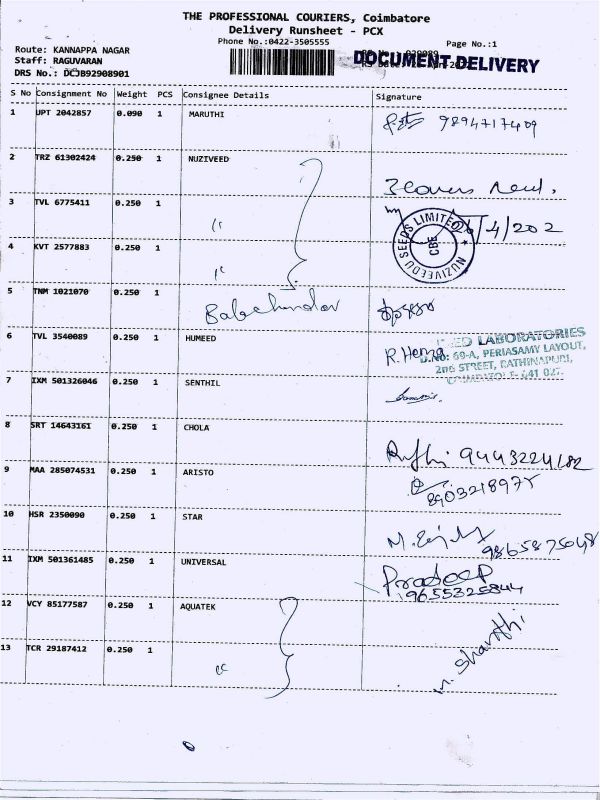 THE PROFESSIONAL COURIERS, Coimbatore
Delivery Runsheet - PCX
Phone No.:0422-3505555
Page No.:1
Route: KANNAPPA NAGAR
Staff: RAGUVARAN
DRS No.: DCJB92908901
DOCUMENT DELIVERY
S No Consignment No Weight PCS Consignee Details Signature
1 JPT 2042857 0.090 1 MARUTHI 9894717409
2 TRZ 61302424 0.250 1 NUZIVEED
3 covers
3 TVL 6775411 0.250 1 "
/4/202
NUZIVEEDU SEEDS LIMITED
CBE
4 KVT 2577883 0.250 1 "
5 TNM 1021070 0.250 1
6 TVL 3540089 0.250 1 HUMEED R.Hema
LABORATORIES
D.NO: 69-A, PERIASAMY LAYOUT,
2nd STREET, RATHINAPURI,
COIMBATORE-641 027.
7 IXM 501326046 0.250 1 SENTHIL
8 SRT 14643161 0.250 1 CHOLA 9443224182
9 MAA 285074531 0.250 1 ARISTO
10 HSR 2350090 0.250 1 STAR
11 IXM 501361485 0.250 1 UNIVERSAL Pradeep
9655325844
12 VCY 85177587 0.250 1 AQUATEK
13 TCR 29187412 0.250 1 "
M. Sharthi